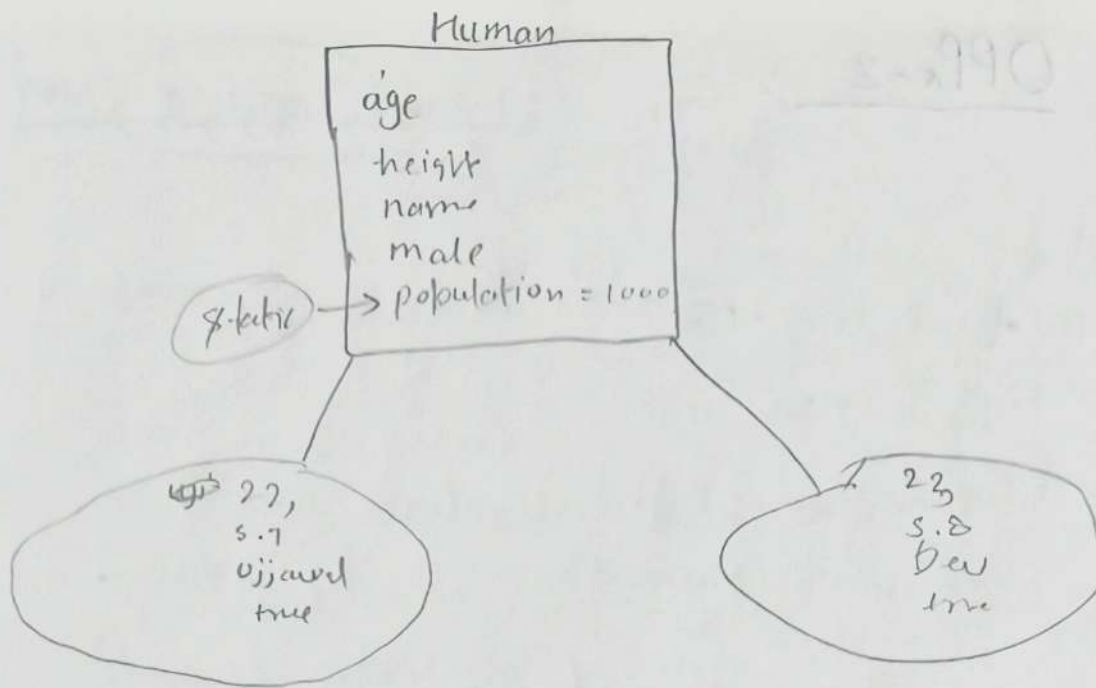 Human
age
height
name
male
static → population = 1000
22,
5.7
Ujjawal
true
23,
5.8
Dev
true